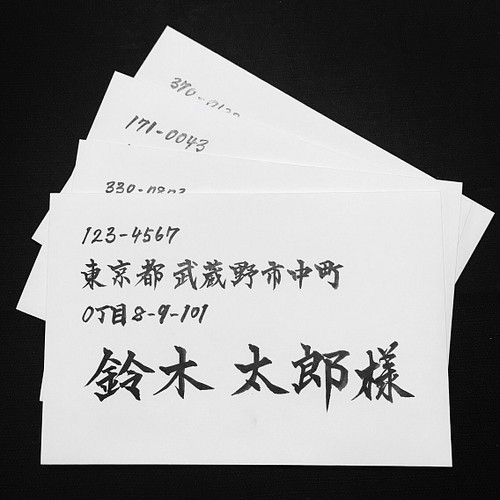 171-0043
123-4567
東京都 武蔵野市中町
0丁目8-9-101
鈴木 太郎様